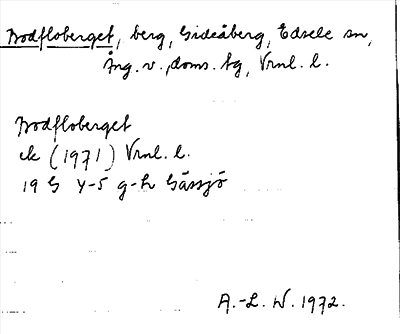 Bodfloberget, berg, Gideåberg, Edsele sn,
Ång. v., doms. tg, Vrnl. l.
Bodfloberget
ek (1971) Vrnl. l.
19 G Y-5 g-h Gässjö
A.-L. W. 1972.